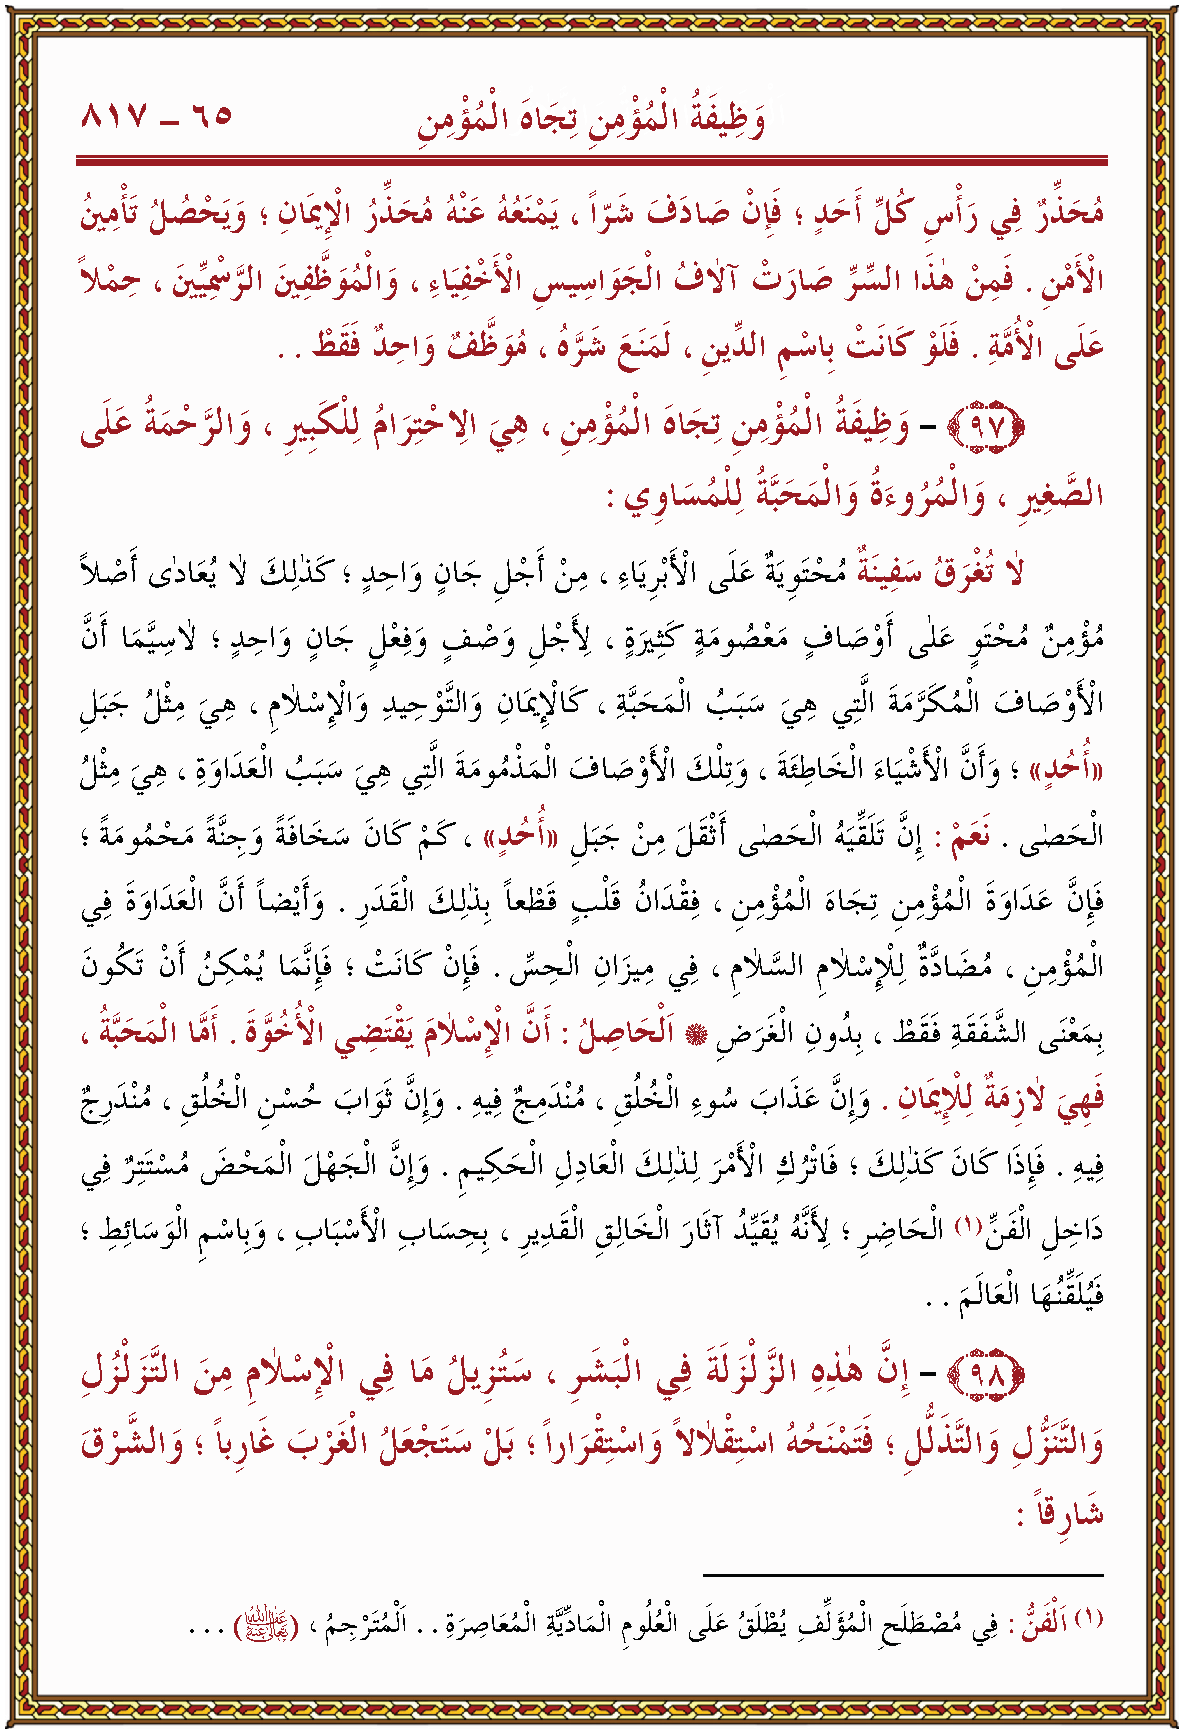 وَظِيفَةُ الْمُؤْمِنِ تِجَاهَ الْمُؤْمِنِ ٦٥ ــ ٨١٧
مُحَذِّرٌ فِي رَأْسِ كُلِّ أَحَدٍ ؛ فَإِنْ صَادَفَ شَرّاً ، يَمْنَعُهُ عَنْهُ مُحَذِّرُ الْإِيمَانِ ؛ وَيَحْصُلُ تَأْمِينُ
الْأَمْنِ . فَمِنْ هٰذَا السِّرِّ صَارَتْ آلَافُ الْجَوَاسِيسِ الْأَخْفِيَاءِ ، وَالْمُوَظَّفِينَ الرَّسْمِيِّينَ ، حِمْلاً
عَلَى الْأُمَّةِ . فَلَوْ كَانَتْ بِاسْمِ الدِّينِ ، لَمَنَعَ شَرَّهُ ، مُوَظَّفٌ وَاحِدٌ فَقَطْ . .
﴿٩٧﴾ – وَظِيفَةُ الْمُؤْمِنِ تِجَاهَ الْمُؤْمِنِ ، هِيَ الِاحْتِرَامُ لِلْكَبِيرِ ، وَالرَّحْمَةُ عَلَى
الصَّغِيرِ ، وَالْمُرُوءَةُ وَالْمَحَبَّةُ لِلْمُسَاوِي :
لَا تُغْرَقُ سَفِينَةٌ مُحْتَوِيَةٌ عَلَى الْأَبْرِيَاءِ ، مِنْ أَجْلِ جَانٍ وَاحِدٍ ؛ كَذٰلِكَ لَا يُعَادٰى أَصْلاً
مُؤْمِنٌ مُحْتَوٍ عَلٰى أَوْصَافٍ مَعْصُومَةٍ كَثِيرَةٍ ، لِأَجْلِ وَصْفٍ وَفِعْلٍ جَانٍ وَاحِدٍ ؛ لَاسِيَّمَا أَنَّ
الْأَوْصَافَ الْمُكَرَّمَةَ الَّتِي هِيَ سَبَبُ الْمَحَبَّةِ ، كَالْإِيمَانِ وَالتَّوْحِيدِ وَالْإِسْلَامِ ، هِيَ مِثْلُ جَبَلِ
«أُحُدٍ» ؛ وَأَنَّ الْأَشْيَاءَ الْخَاطِئَةَ ، وَتِلْكَ الْأَوْصَافَ الْمَذْمُومَةَ الَّتِي هِيَ سَبَبُ الْعَدَاوَةِ ، هِيَ مِثْلُ
الْحَصٰى . نَعَمْ : إِنَّ تَلَقِّيَهُ الْحَصٰى أَثْقَلَ مِنْ جَبَلِ «أُحُدٍ» ، كَمْ كَانَ سَخَافَةً وَجِنَّةً مَحْمُومَةً ؛
فَإِنَّ عَدَاوَةَ الْمُؤْمِنِ تِجَاهَ الْمُؤْمِنِ ، فِقْدَانُ قَلْبٍ قَطْعاً بِذٰلِكَ الْقَدَرِ . وَأَيْضاً أَنَّ الْعَدَاوَةَ فِي
الْمُؤْمِنِ ، مُضَادَّةٌ لِلْإِسْلَامِ السَّلَامِ ، فِي مِيزَانِ الْحِسِّ . فَإِنْ كَانَتْ ؛ فَإِنَّمَا يُمْكِنُ أَنْ تَكُونَ
بِمَعْنَى الشَّفَقَةِ فَقَطْ ، بِدُونِ الْغَرَضِ ۞ اَلْحَاصِلُ : أَنَّ الْإِسْلَامَ يَقْتَضِي الْأُخُوَّةَ . أَمَّا الْمَحَبَّةُ ،
فَهِيَ لَازِمَةٌ لِلْإِيمَانِ . وَإِنَّ عَذَابَ سُوءِ الْخُلُقِ ، مُنْدَمِجٌ فِيهِ . وَإِنَّ ثَوَابَ حُسْنِ الْخُلُقِ ، مُنْدَرِجٌ
فِيهِ . فَإِذَا كَانَ كَذٰلِكَ ؛ فَاتْرُكِ الْأَمْرَ لِذٰلِكَ الْعَادِلِ الْحَكِيمِ . وَإِنَّ الْجَهْلَ الْمَحْضَ مُسْتَتِرٌ فِي
دَاخِلِ الْفَنِّ (١) الْحَاضِرِ ؛ لِأَنَّهُ يُقَيِّدُ آثَارَ الْخَالِقِ الْقَدِيرِ ، بِحِسَابِ الْأَسْبَابِ ، وَبِاسْمِ الْوَسَائِطِ ؛
فَيُلَقِّنُهَا الْعَالَمَ . .
﴿٩٨﴾ – إِنَّ هٰذِهِ الزَّلْزَلَةَ فِي الْبَشَرِ ، سَتُزِيلُ مَا فِي الْإِسْلَامِ مِنَ التَّزَلْزُلِ
وَالتَّنَزُّلِ وَالتَّذَلُّلِ ؛ فَتَمْنَحُهُ اسْتِقْلَالاً وَاسْتِقْرَاراً ؛ بَلْ سَتَجْعَلُ الْغَرْبَ غَارِباً ؛ وَالشَّرْقَ
شَارِقاً :
(١) اَلْفَنُّ : فِي مُصْطَلَحِ الْمُؤَلِّفِ يُطْلَقُ عَلَى الْعُلُومِ الْمَادِّيَّةِ الْمُعَاصِرَةِ . . اَلْمُتَرْجِمُ ، ( ) . . .